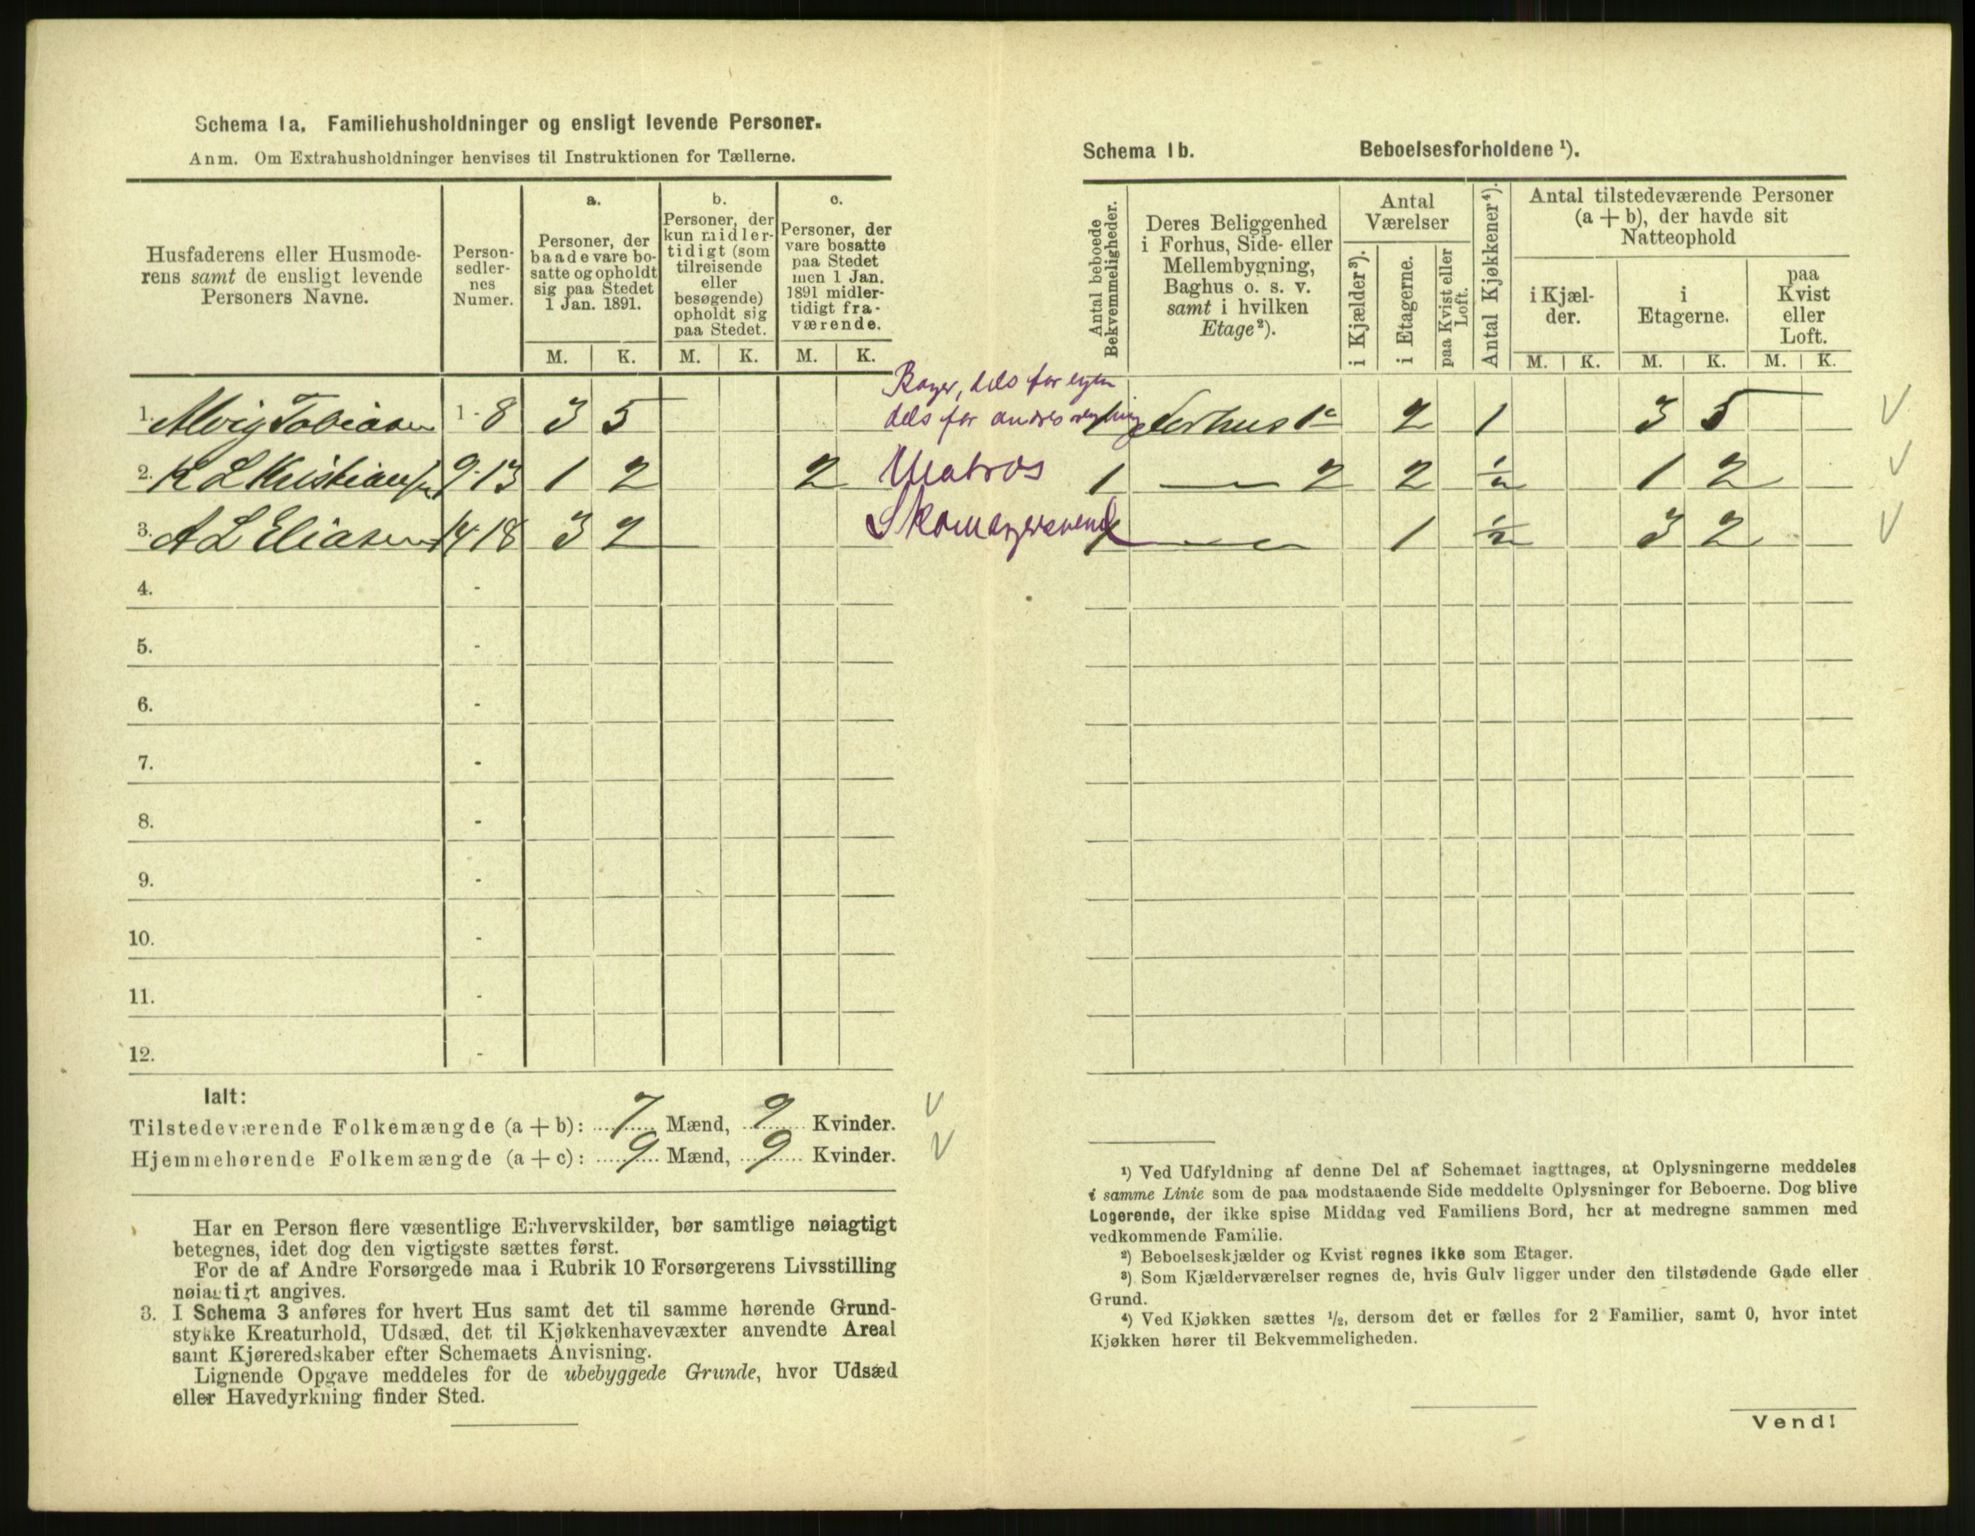 Schema 1a. Familiehusholdninger og ensligt levende Personer.
Anm. Om Extrahusholdninger henvises til Instruktionen for Tællerne.
Husfaderens eller Husmode-
rens samt de ensligt levende
Personers Navne.
Person-
sedler-
nes
Numer.
a.
Personer, der
baade vare bo-
satte og opholdt
sig paa Stedet
1 Jan. 1891.
b.
Personer, der
kun midler-
tidigt (som
tilreisende
eller
besøgende)
opholdt sig
paa Stedet.
c.
Personer, der
vare bosatte
paa Stedet
men 1 Jan.
1891 midler-
tidigt fra-
værende.
M. K. M. K. M. K.
1. Alvig Tobiasen 1 - 8 3 5
2. K L Kristiansen 9-13 1 2 2
3. A L Eliasen 14-18 3 2
4. -
5. -
6. -
7. -
8. -
9. -
10. -
11. -
12. -
Ialt:
Tilstedeværende Folkemængde (a + b): 7 Mænd, 9 Kvinder. V
Hjemmehørende Folkemængde (a + c): 9 Mænd, 9 Kvinder. V
Har en Person flere væsentlige Erhvervskilder, bør samtlige nøiagtigt
betegnes, idet dog den vigtigste sættes først.
For de af Andre Forsørgede maa i Rubrik 10 Forsørgerens Livsstilling
nøiagtigt angives.
3. I Schema 3 anføres for hvert Hus samt det til samme hørende Grund-
stykke Kreaturhold, Udsæd, det til Kjøkkenhavevæxter anvendte Areal
samt Kjøreredskaber efter Schemaets Anvisning.
Lignende Opgave meddeles for de ubebyggede Grunde, hvor Udsæd
eller Havedyrkning finder Sted.
Schema 1b. Beboelsesforholdene ¹).
Antal beboede
Bekvemmeligheder.
Deres Beliggenhed
i Forhus, Side- eller
Mellembygning,
Baghus o. s. v.
samt i hvilken
Etage ²).
Antal
Værelser
i Kjælder ³).
i Etagerne.
paa Kvist eller
Loft.
Antal Kjøkkener ⁴).
Antal tilstedeværende Personer
(a + b), der havde sit
Natteophold
i Kjæl-
der.
i
Etagerne.
paa
Kvist
eller
Loft.
M. K. M. K. M. K.
Bager, dels for egen
dels for andres regning
1 Forhus 1e 2 1 3 5 V
Matros 1 — 2 2 ½ 1 2 V
Skomagersvend 1 — 1 ½ 3 2 V
¹) Ved Udfyldning af denne Del af Schemaet iagttages, at Oplysningerne meddeles
i samme Linie som de paa modstaaende Side meddelte Oplysninger for Beboerne. Dog blive
Logerende, der ikke spise Middag ved Familiens Bord, her at medregne sammen med
vedkommende Familie.
²) Beboelseskjælder og Kvist regnes ikke som Etager.
³) Som Kjælderværelser regnes de, hvis Gulv ligger under den tilstødende Gade eller
Grund.
⁴) Ved Kjøkken sættes ½, dersom det er fælles for 2 Familier, samt 0, hvor intet
Kjøkken hører til Bekvemmeligheden.
Vend!